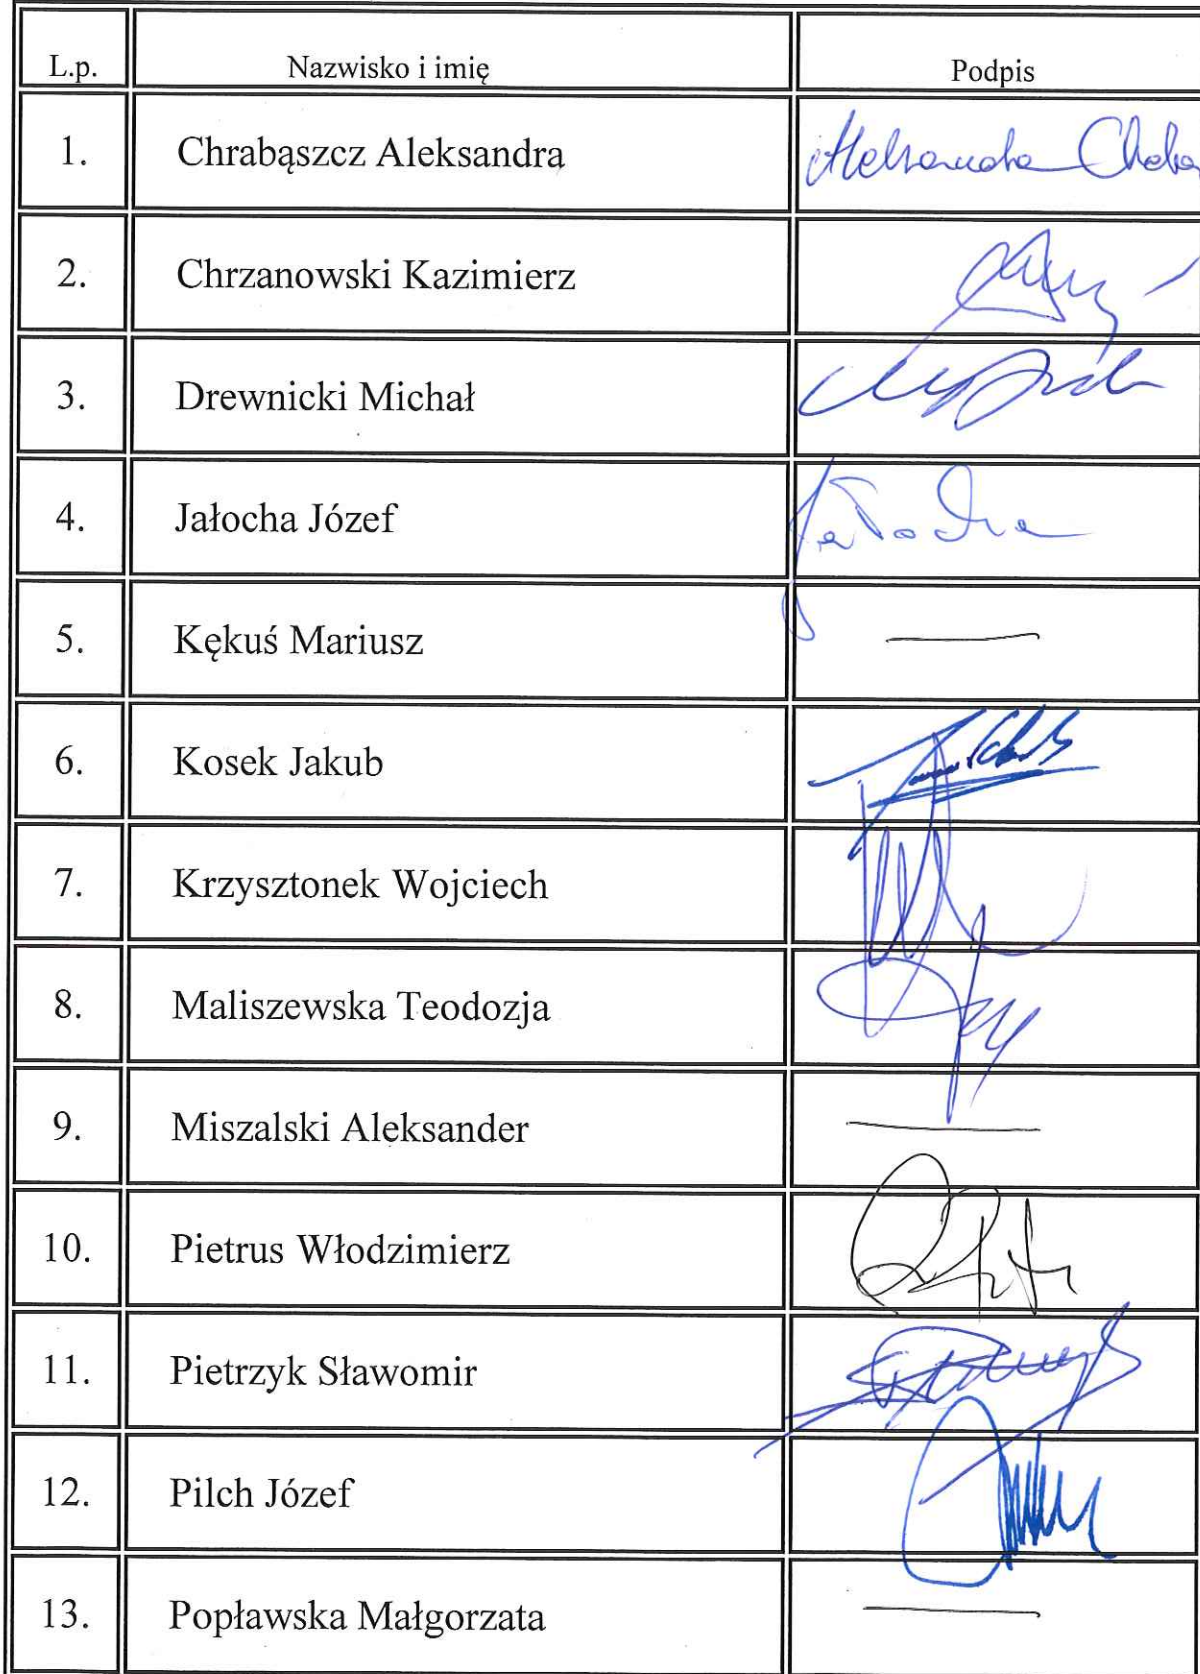 L.p. Nazwisko i imię Podpis
1. Chrabąszcz Aleksandra Aleksandra
2. Chrzanowski Kazimierz
3. Drewnicki Michał
4. Jałocha Józef Jałocha
5. Kękuś Mariusz —
6. Kosek Jakub
7. Krzysztonek Wojciech
8. Maliszewska Teodozja
9. Miszalski Aleksander —
10. Pietrus Włodzimierz
11. Pietrzyk Sławomir
12. Pilch Józef
13. Popławska Małgorzata —